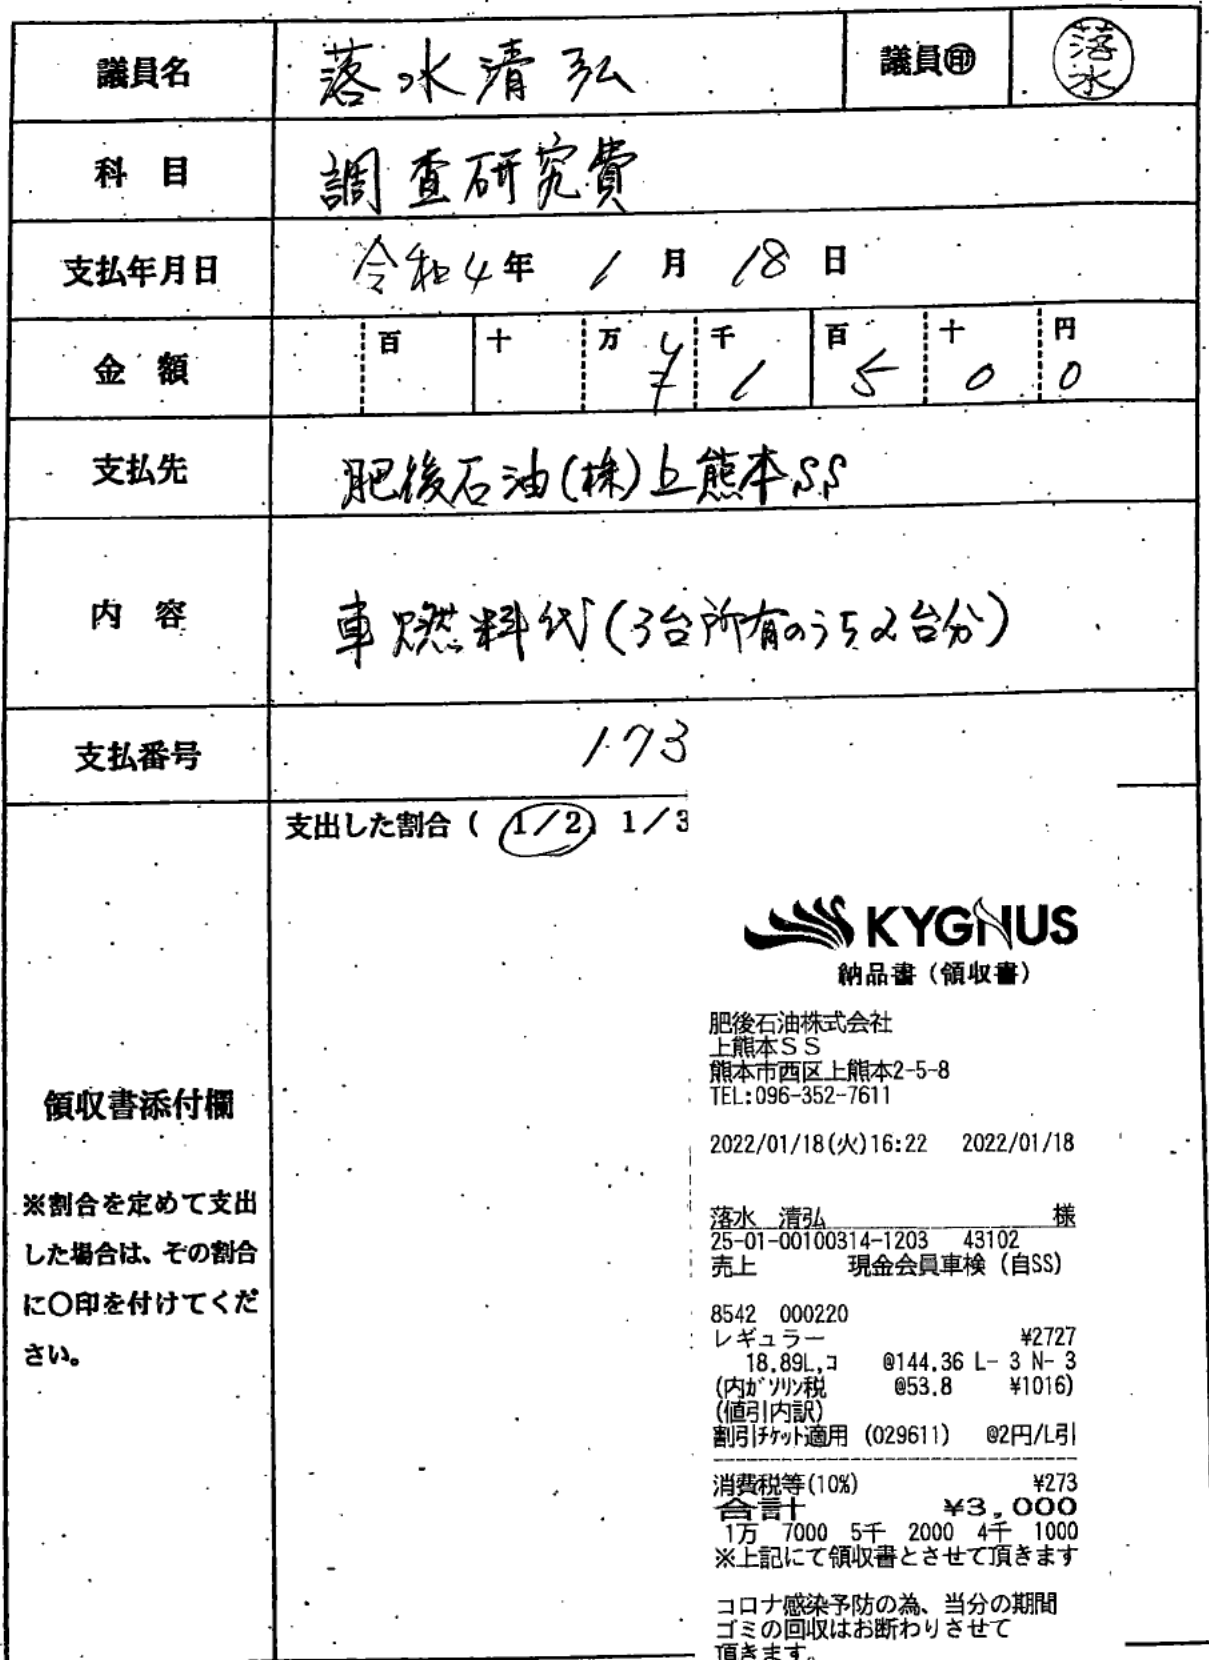 議員名 落水清弘 議員㊞ 落水
科 目 調査研究費
支払年月日 令和4年 1月 18日
金 額 百 十 万 千 百 十 円
¥ 1 5 0 0
支払先 肥後石油(株)上熊本SS
内 容 車燃料代(3台所有のうち2台分)
支払番号 173
支出した割合 ( 1/2) 1/3
KYGNUS
納品書(領収書)
肥後石油株式会社
上熊本SS
熊本市西区上熊本2-5-8
TEL:096-352-7611
2022/01/18(火)16:22 2022/01/18
落水 清弘 様
25-01-00100314-1203 43102
売上 現金会員車検(自SS)
8542 000220
レギュラー ¥2727
18.89L,コ @144.36 L- 3 N- 3
(内ガソリン税 @53.8 ¥1016)
(値引内訳)
割引チケット適用(029611) @2円/L引
消費税等(10%) ¥273
合計 ¥3,000
1万 7000 5千 2000 4千 1000
※上記にて領収書とさせて頂きます
コロナ感染予防の為、当分の期間
ゴミの回収はお断わりさせて
頂きます。
領収書添付欄
※割合を定めて支出
した場合は、その割合
に〇印を付けてくだ
さい。